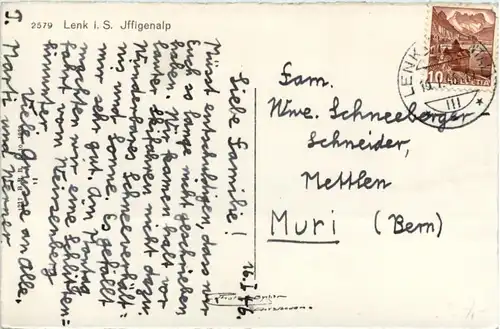 2579 Lenk i. S. Jffigenalp
16. I. 46.
Liebe Familie!
Müsst entschuldigen, dass wir
Euch so lange nicht geschrieben
haben. Wir kamen halt vor
lauter Skifahren nicht dazu.
Wunderbares Schneeverhält=
nis und Sonne. Es gefällt
mir sehr gut. Am Montag
machten wir eine Schlitten=
fahrt vom
hinunter.
Viele Grüsse an Alle.
J. Marti und Werner
Fam.
Wwe. Schneeberger-
Schneider,
Mettlen
Muri (Bern)
LENK
III
10